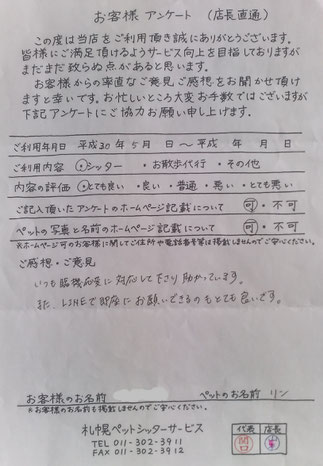 お客様アンケート （店長直通）
この度は当店をご利用頂き誠にありがとうございます。
皆様にご満足頂けるようサービス向上を目指しておりますが
まだまだ致らぬ点があると思います。
お客様からの率直なご意見ご感想をお聞かせ頂け
ますと幸いです。お忙しいところ大変お手数ではございますが
下記アンケートにご協力お願い申し上げます。
ご利用年月日 平成30年5月 日〜平成 年 月 日
ご利用内容 ・シッター ・お散歩代行 ・その他
内容の評価 ・とても良い ・良い ・普通 ・悪い ・とても悪い
ご記入頂いたアンケートのホームページ記載について 可・不可
ペットの写真と名前のホームページ記載について 可・不可
※ホームページ可のお客様に関してご住所や電話番号等は掲載しませんのでご安心ください。
ご感想・ご意見
いつも臨機応変に対応して下さり助かっています。
また、LINEで即座にお願いできるのもとても良いです。
お客様のお名前 ペットのお名前 リン
※お客様のお名前も掲載しませんのでご安心ください。
札幌ペットシッターサービス
TEL 011-302-3911
FAX 011-302-3912
代表 店長
関口